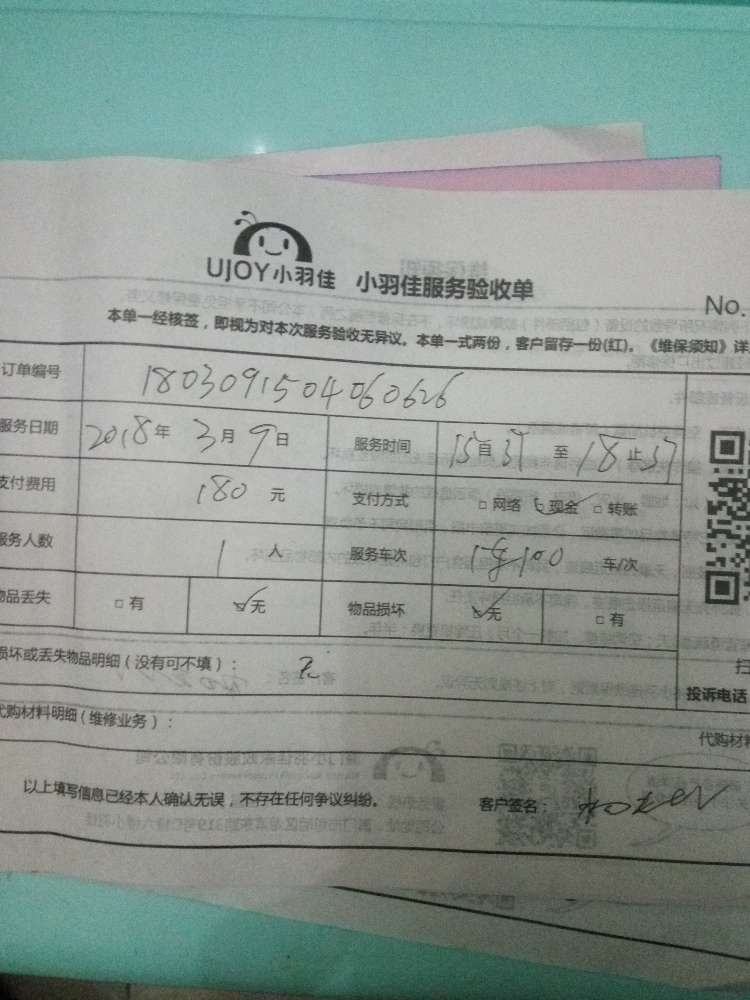 UJOY小羽佳 小羽佳服务验收单
No.
本单一经核签，即视为对本次服务验收无异议。本单一式两份，客户留存一份(红)。《维保须知》详
订单编号 1803091504060626
服务日期 2018年 3月 9日 服务时间 15 37 至 18 37
支付费用 180 元 支付方式 □ 网络 ☑ 现金 □ 转账
服务人数 1 人 服务车次 车/次
物品丢失 □ 有 ☑ 无 物品损坏 ☑ 无 □ 有
损坏或丢失物品明细（没有可不填）： 无
扫
投诉电话
代购材料明细（维修业务）：
代购材料
以上填写信息已经本人确认无误，不存在任何争议纠纷。 客户签名：